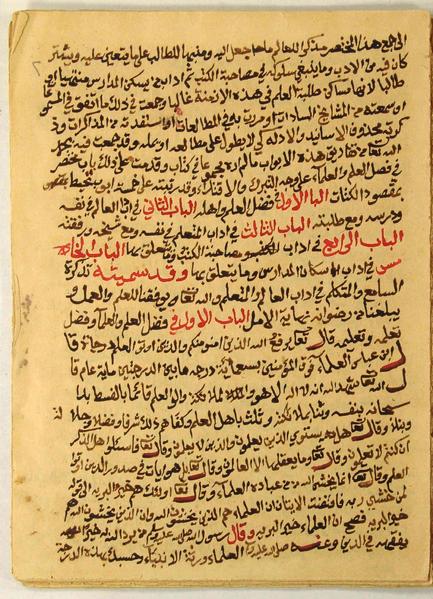 الى جمع هذا المختصر مذكرا للعالم ما جعل اليه ومنبها للطالب على ما يتعين عليه ويشتر
كان فيه من الادب وما ينبغي سلوكه في مصاحبة الكتب ثم اداب من يسكن المدارس منتهيا او
طالبا لانها مساكن طلبة العلم في هذه الازمنة غالبا وجمعت في ذلك مما اتفق في المسموعا
او سمعته من المشايخ السادات او مررت به في المطالعات او استفدته في المذاكرات وذ
كرته محذوف الاسانيد والادله كي لا يطول على مطالعه او يمله وقد جمعت فيه بحمد
الله تعالى تفاريق هذه الابواب مالم اره مجموعا في كتاب وقدمت على ذلك باب مختصر
في فضل العلم والعلماء على وجه التبرك والاقتداء وقد رتبته على خمسة ابواب تحيط
بمقصود الكتاب الباب الاول في فضل العلم واهله الباب الثاني في اداب العالم في نفسه
ودرسه ومع طلبته الباب الثالث في اداب المتعلم في نفسه ومع شيخه ورفقته
الباب الرابع في اداب الكتب ومصاحبة الكتب وما يتعلق بها الباب الخا
مس في اداب سكان المدارس وما يتعلق بها وقد سميته تذكرة
السامع والمتكلم في اداب العالم والمتعلم والله تعالى يوفقنا للعلم والعمل و
يبلغنا من رضوانه نهاية الامل الباب الاول في فضل العلم والعلماء وفضل
تعلمه وتعليمه قال تعالى يرفع الله الذين امنوا منكم والذين اوتوا العلم درجاة قا
ل ابن عباس العلماء فوق المؤمنين بسبعمائة درجه ما بين الدرجتين ماية عام قا
ل الله تعالى شهد الله انه لا اله الا هو والملائكة واولوا العلم قائما بالقسط بدا
سبحانه بنفسه وثنا بملائكته وثلث باهل العلم وكفاهم ذلك شرفا وفضلا وجلالة
ونبلا وقال تعالى هل يستوي الذين يعلمون والذين لا يعلمون وقال تعالى فاسئلوا اهل الذكر
ان كنتم لا تعلمون وقال تعالى وما يعقلها الا العالمون وقال تعالى بل هو ايات في صدور الذين اوتوا
العلم وقال تعالى انما يخشى الله من عباده العلماء وقال تعالى اولئك هم خير البريه الى قوله
لمن خشي ربه فاقتضة الايتان ان العلماء هم الذين يخشون الله وان الذين يخشون الله هم
خير البريه فصح ان العلماء خير البريه وقال رسول الله صلى الله عليه وسلم من يرد الله به خيرا
يفقهه في الدين وعنه صلى الله عليه وسلم العلماء ورثة الانبياء وحسبك بهذه الدرجة